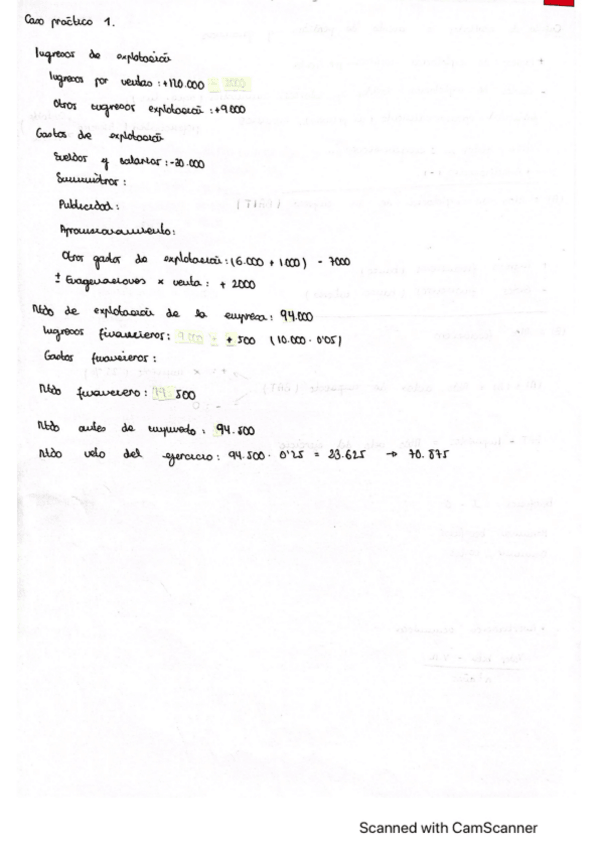 Caso práctico 1.
Ingresos de explotación
Ingresos por ventas: +120.000 - 2000
Otros ingresos explotación: +9.000
Gastos de explotación
Sueldos y salarios: -30.000
Suministros:
Publicidad:
Aprovisionamiento:
Otros gastos de explotación: (6.000 + 1000) - 7000
± Exageraciones x venta: + 2000
Rtdo de explotación de la empresa: 94.000
Ingresos financieros: + 500 (10.000 · 0'05)
Gastos financieros:
Rtdo financiero: 500
Rtdo antes de impuesto: 94.500
Rtdo neto del ejercicio: 94.500 · 0'25 = 23.625 → 70.875
Scanned with CamScanner